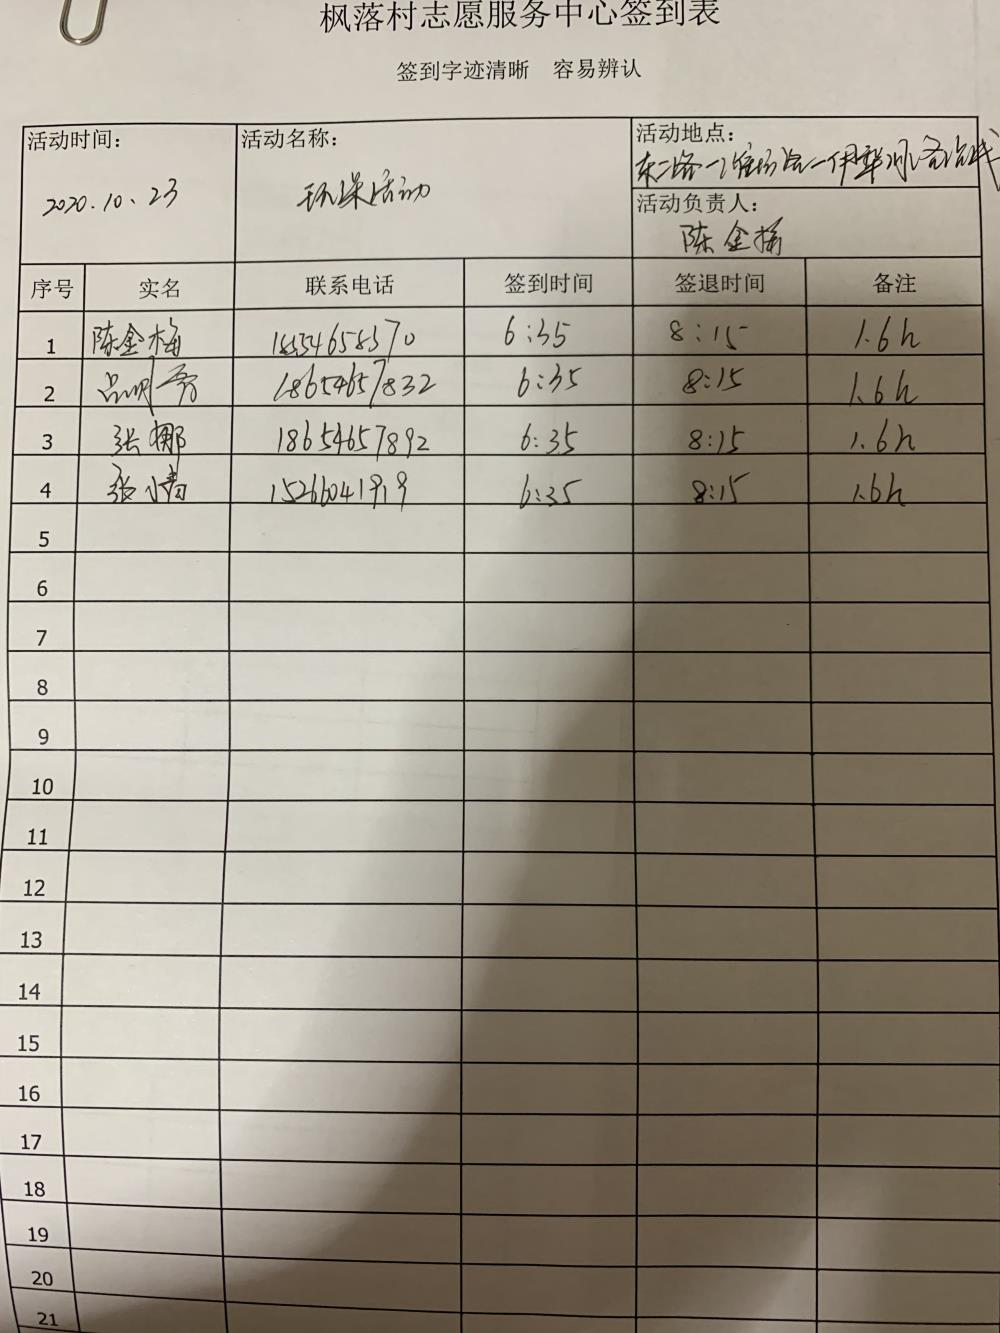 枫落村志愿服务中心签到表
签到字迹清晰 容易辨认
活动时间: 活动名称: 活动地点:
2020.10.23 环保活动 东二路
活动负责人:
陈金梅
序号 实名 联系电话 签到时间 签退时间 备注
1 陈金梅 6:35 8:15 1.6h
2 18654657832 6:35 8:15 1.6h
3 张娜 18654657892 6:35 8:15 1.6h
4 张 15266041919 6:35 8:15 1.6h
5
6
7
8
9
10
11
12
13
14
15
16
17
18
19
20
21